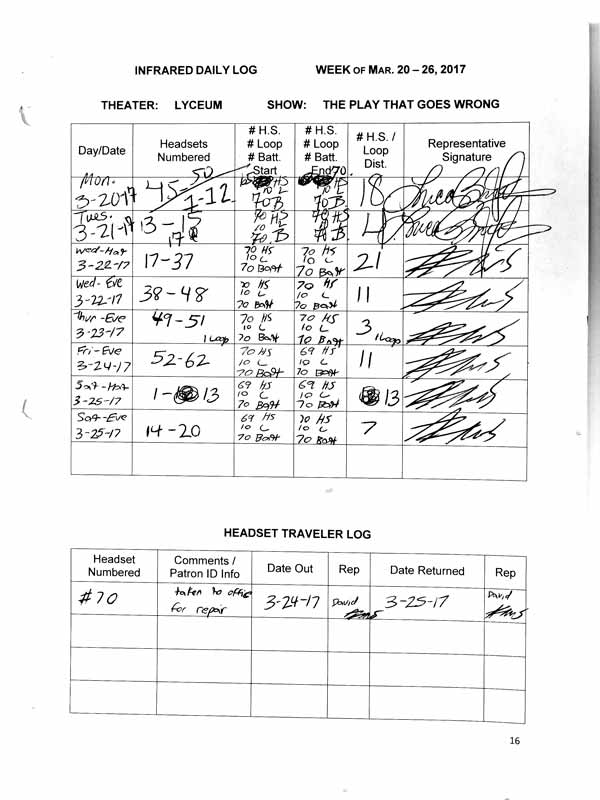 INFRARED DAILY LOG WEEK OF MAR. 20 – 26, 2017
THEATER: LYCEUM SHOW: THE PLAY THAT GOES WRONG
Day/Date Headsets Numbered # H.S. # Loop # Batt. Start # H.S. # Loop # Batt. End # H.S. / Loop Dist. Representative Signature
Mon. 3-2017 45-50 1-12 HS 10 L 70 B 70 10 L 70 B 18
Tues. 3-21-17 13-15 17 70 HS 10 L 70 B 70 HS 10 L 70 B 4
Wed-Mat 3-22-17 17-37 70 HS 10 L 70 Batt 70 HS 10 L 70 Batt 21
Wed-Eve 3-22-17 38-48 70 HS 10 L 70 Batt 70 HS 10 L 70 Batt 11
Thur-Eve 3-23-17 49-51 1 Loop 70 HS 10 L 70 Batt 70 HS 10 L 70 Batt 3 1 Loop
Fri-Eve 3-24-17 52-62 70 HS 10 L 70 Batt 69 HS 10 L 70 Batt 11
Sat-Mat 3-25-17 1-13 69 HS 10 L 70 Batt 69 HS 10 L 70 Batt 13
Sat-Eve 3-25-17 14-20 69 HS 10 L 70 Batt 70 HS 10 L 70 Batt 7
HEADSET TRAVELER LOG
Headset Numbered Comments / Patron ID Info Date Out Rep Date Returned Rep
#70 taken to office for repair 3-24-17 David 3-25-17 David
16